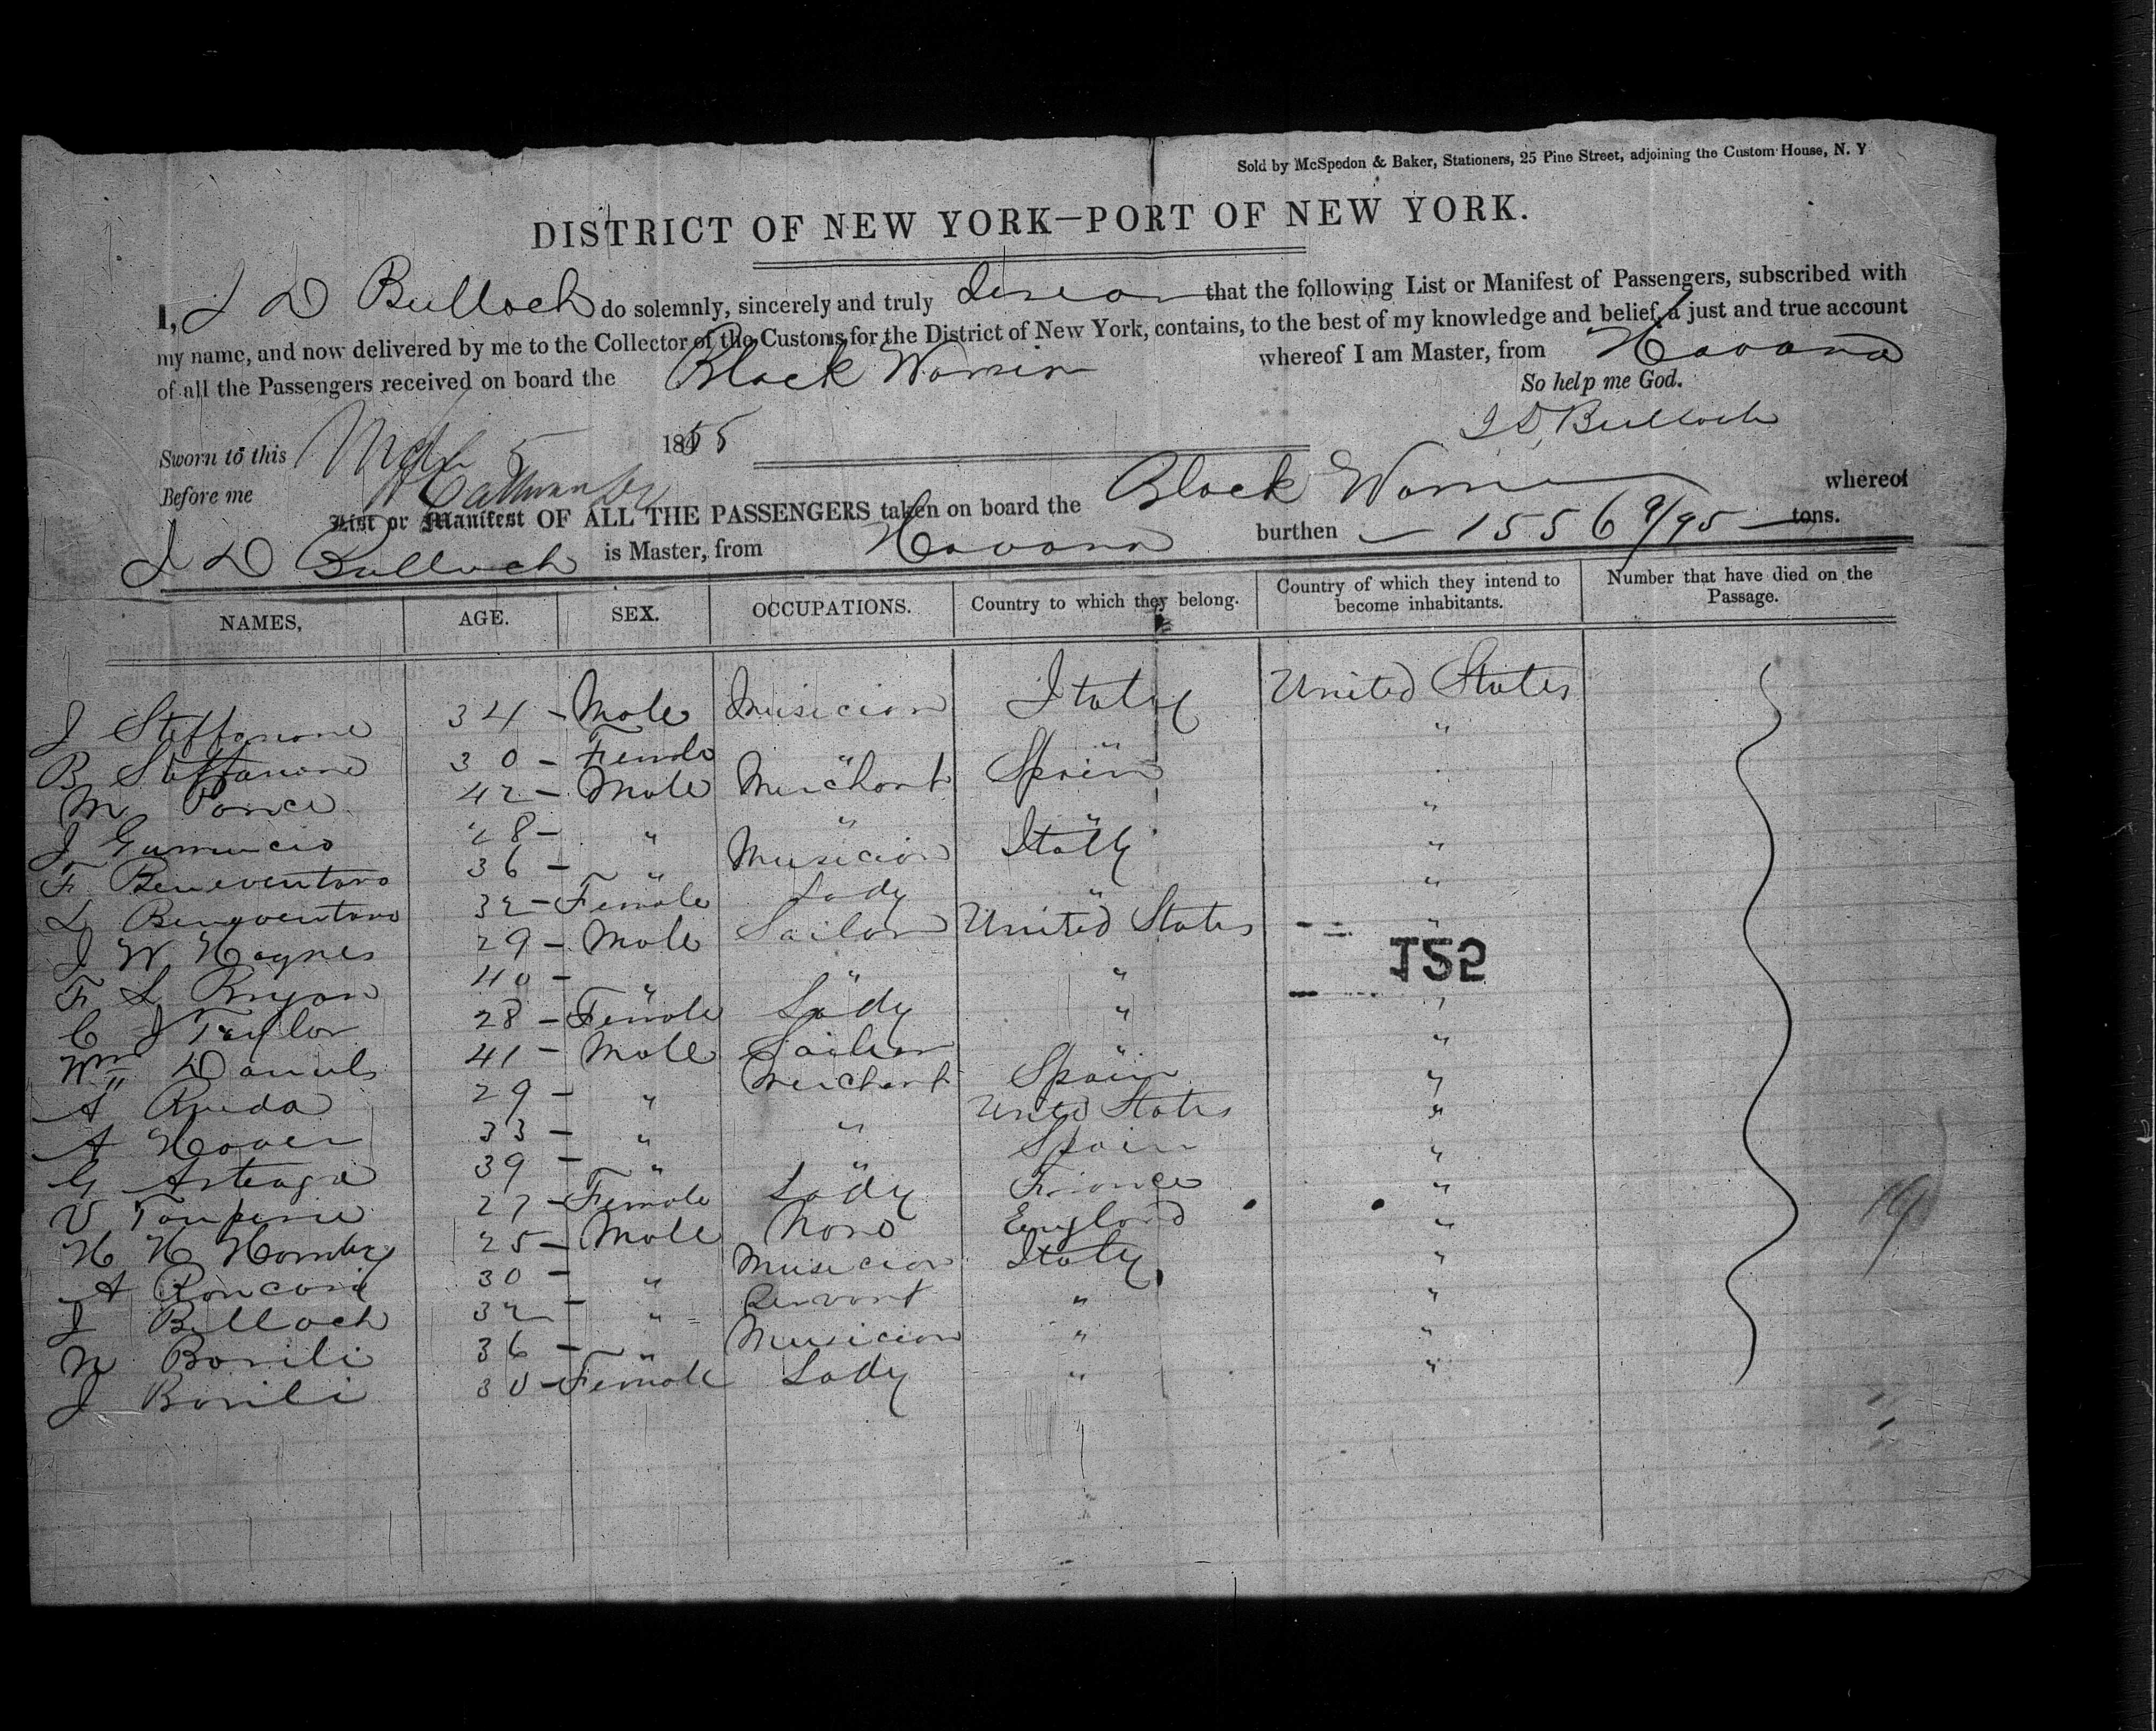 Sold by McSpedon & Baker, Stationers, 25 Pine Street, adjoining the Custom House, N. Y
DISTRICT OF NEW YORK—PORT OF NEW YORK.
I, J D Bulloch do solemnly, sincerely and truly that the following List or Manifest of Passengers, subscribed with
my name, and now delivered by me to the Collector of the Customs for the District of New York, contains, to the best of my knowledge and belief, a just and true account
of all the Passengers received on board the Black Warrior whereof I am Master, from Havana
So help me God.
J D Bulloch
Sworn to this 5 1855
Before me
List or Manifest OF ALL THE PASSENGERS taken on board the Black Warrior whereof
J D Bulloch is Master, from Havana burthen — 1556 9/95 — tons.
NAMES, AGE. SEX. OCCUPATIONS. Country to which they belong. Country of which they intend to become inhabitants. Number that have died on the Passage.
J Steffanone 34 - Male Musician Italy United States
B Steffanone 30 - Female " " "
M Ponce 42 - Male Merchant Spain "
J Gumucio 28 - " " " "
F Beneventano 36 - " Musician Italy "
L Beneventano 32 - Female Lady " "
J W Haynes 29 - Male Sailor United States "
F L Bryan 40 - " " " "
C J Taylor 28 - Female Lady " "
Wm Daniels 41 - Male Sailor " "
A Rueda 29 - " Merchant Spain "
A Hover 33 - " " United States "
G Arteaga 39 - " " Spain "
V 27 - Female Lady France "
H H Hornby 25 - Male None England "
A Ronconi 30 - " Musician Italy "
J Bulloch 32 - " Servant " "
N Barili 36 - " Musician " "
J Barili 30 - Female Lady " "
152
19